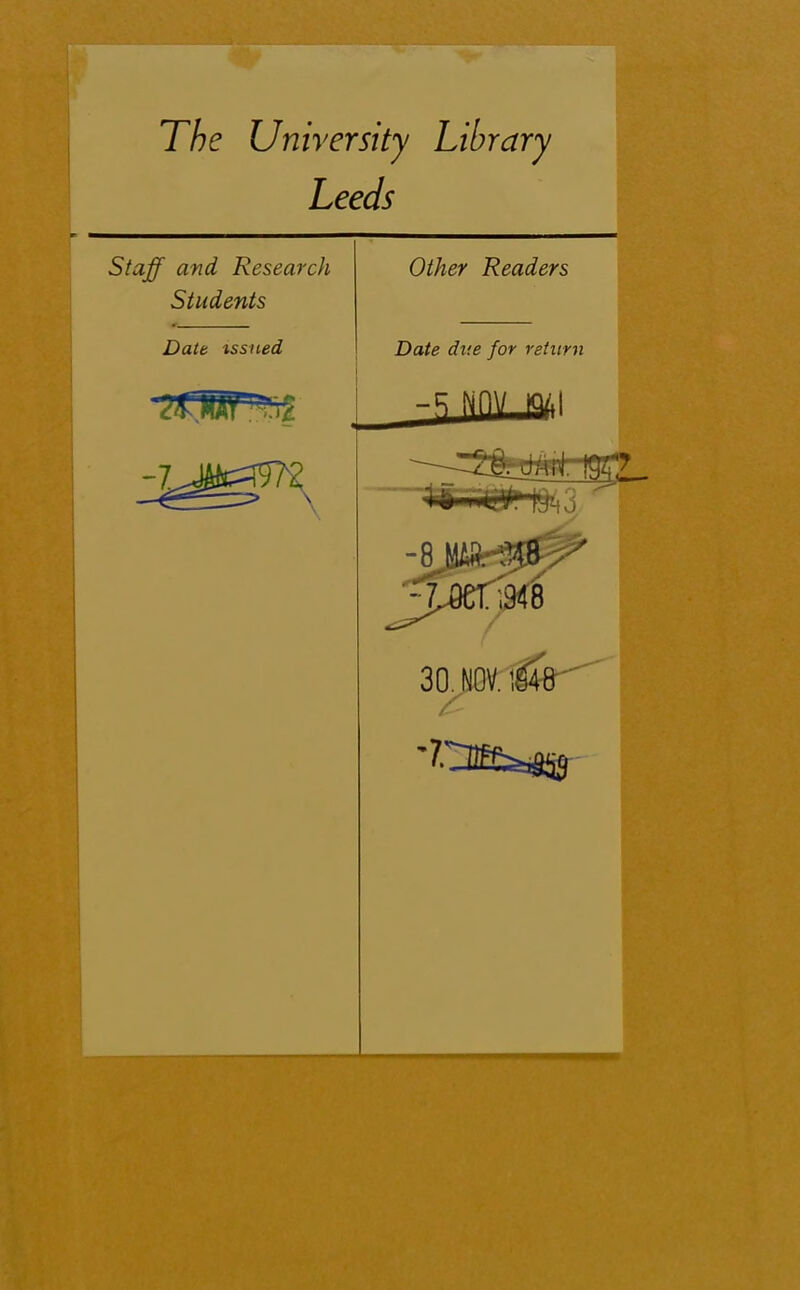 The University Library
Leeds
Staff and Research
Students
Date issued
-7. JAN 1972
Other Readers
Date due for return
-5 NOV 1941
28. JAN. 1942
1943
-8 MAR. 1948
-7. OCT. 1948
30. NOV. 1948
-7. DEC 1959